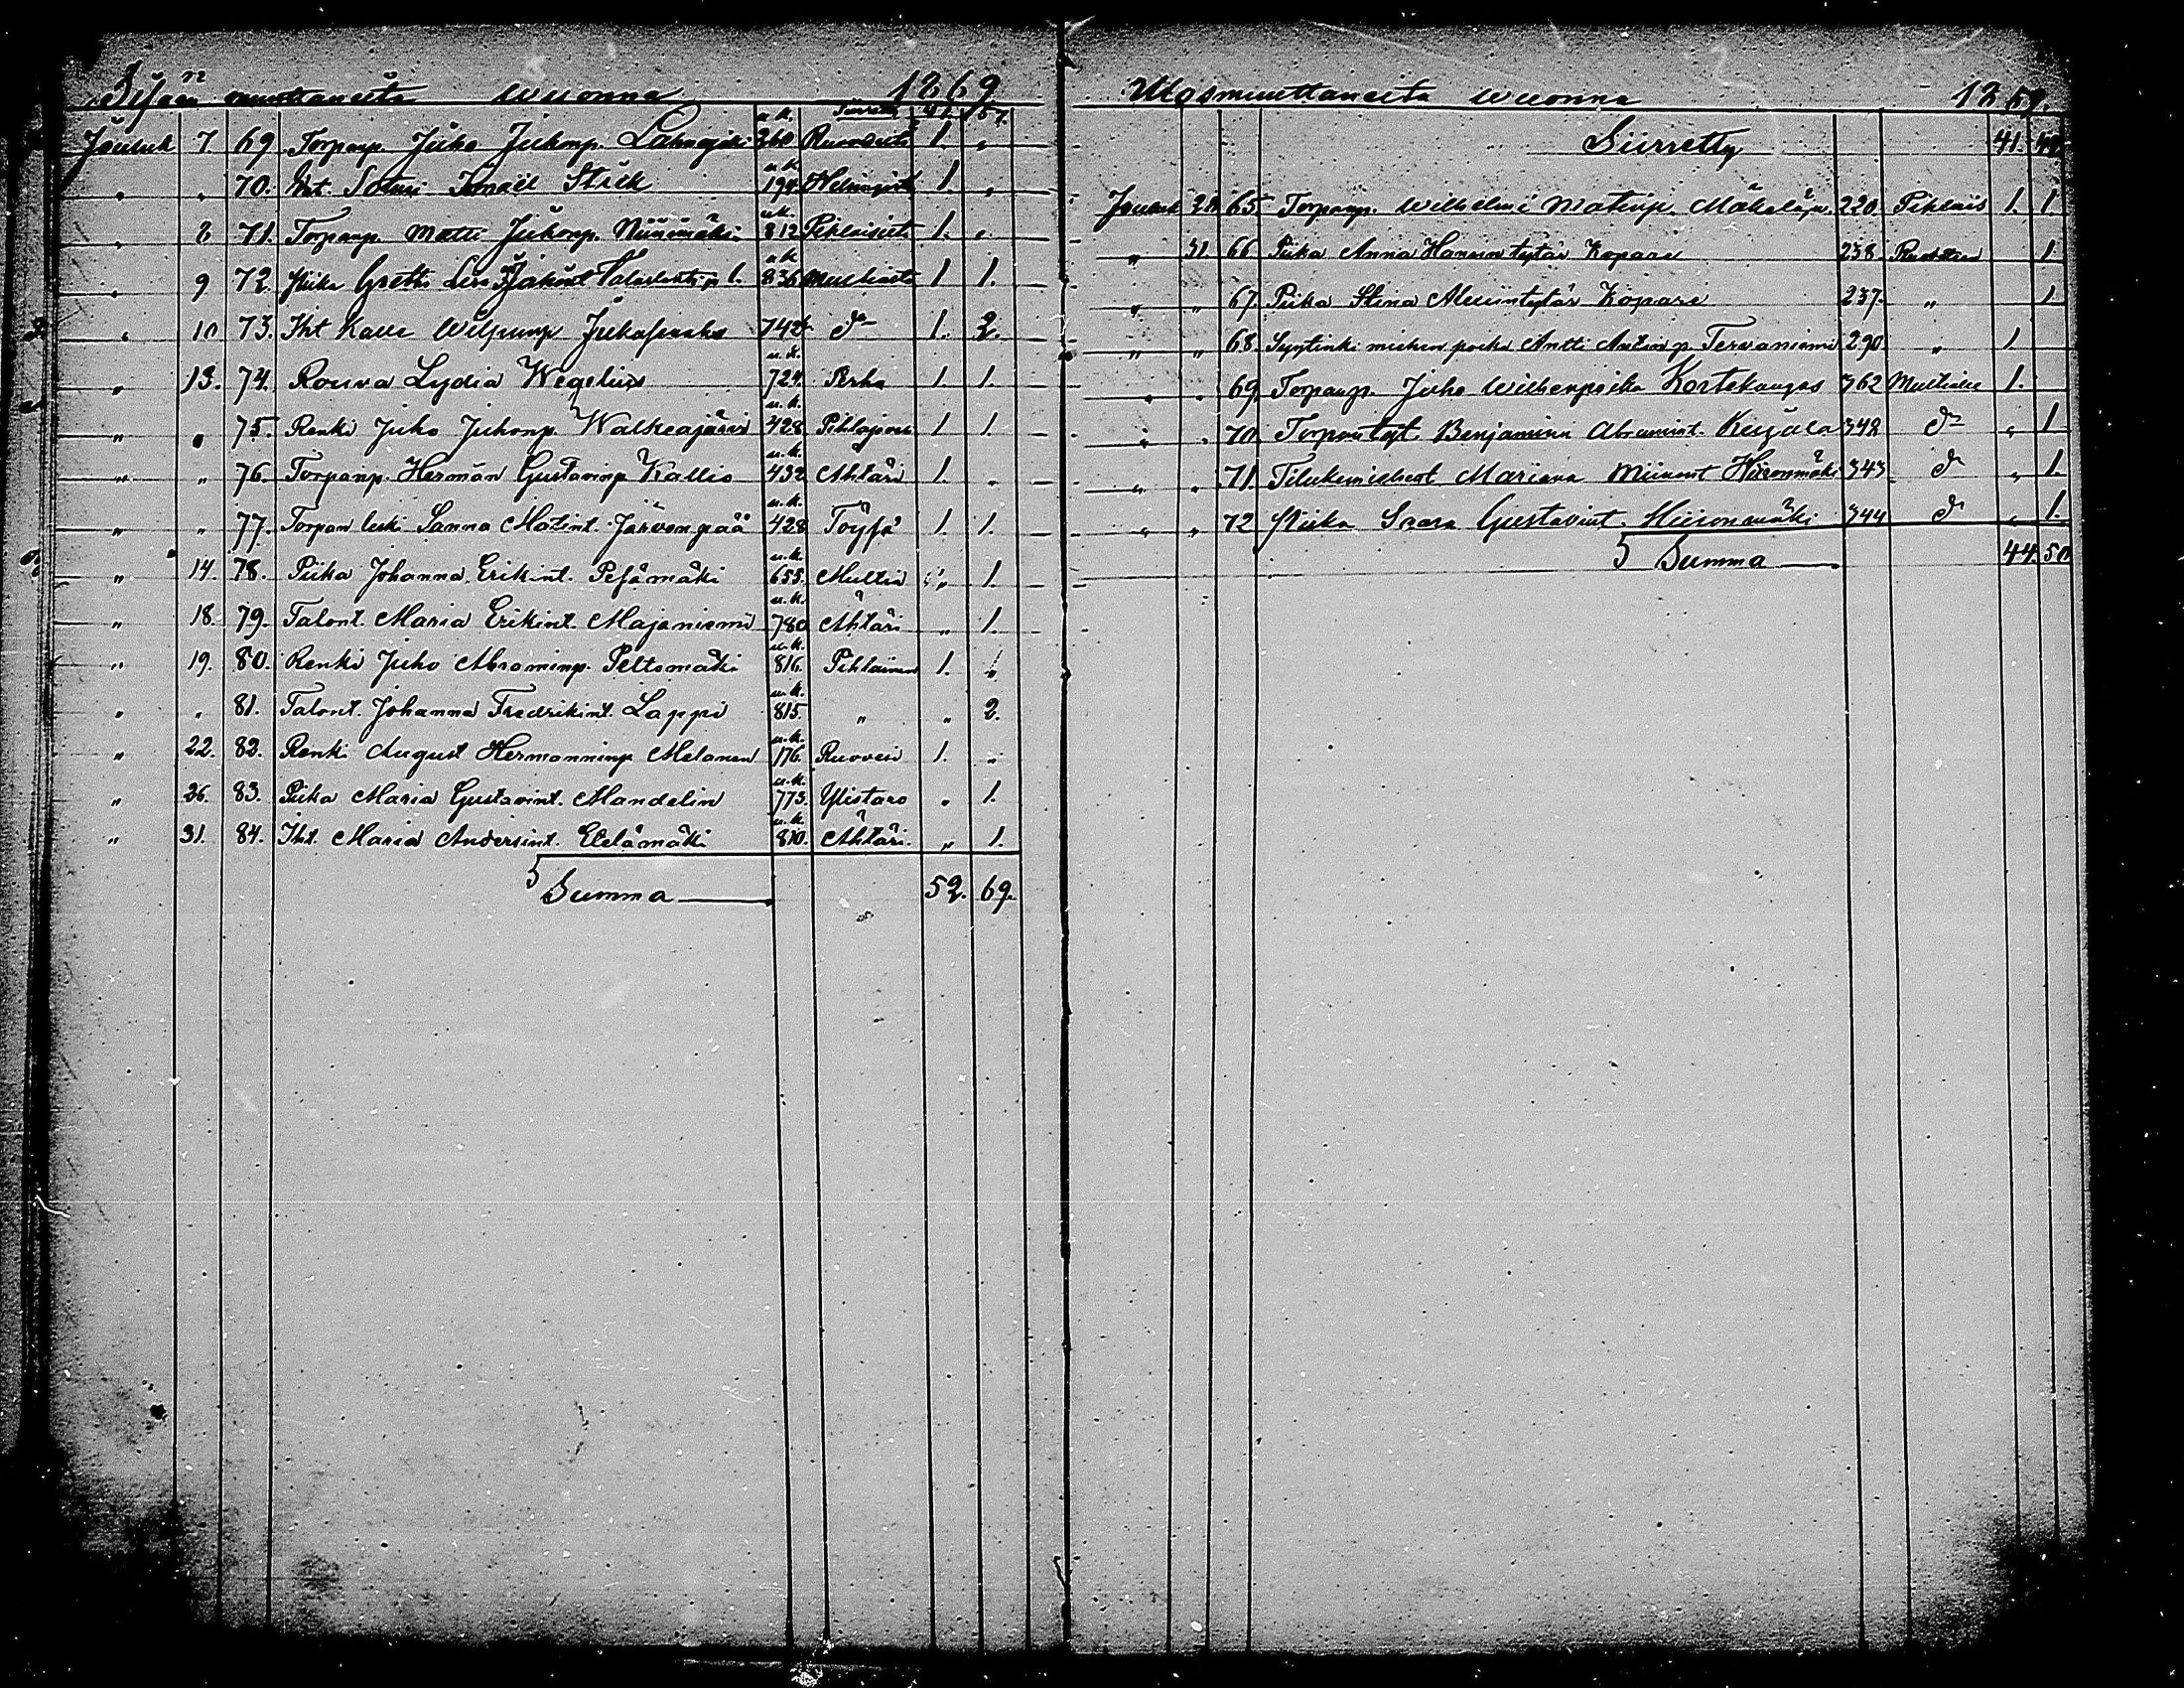 Sisään muuttaneita wuonna 1869
Siirretty 41. 57.
Jouluk 7 69. Torpanp. Juho Juhonp. Lahnajoki u.k. 260 Ruovedeltä 1. "
" " 70. Ent. Sotam. Ismaël Stick u.k. 194 Helsingistä 1. "
" 8 71. Torpanp. Matti Juhonp. Niinimäki u.k. 812 Pihlaisista 1. "
" 9 72. Piika Greta Lisa Jakint u.k. 836 Multialta 1 1.
" 10 73. Iht Kalle Wilpunp 742 do 1. 2.
" 13. 74. Rouva Lydia Wegelius u.k. 724. Perho 1. 1.
" " 75. Renki Juho Juhonp. Walkeajärvi u.k. 428 Pihlajaves 1 1.
" " 76. Torpanp. Herman Gustavinp Kallio u.k. 432 Ähtäri 1. "
" " 77. Torpan leski Sanna Matint. Järvenpää u.k. 428 Töysä 1. 1.
" 14. 78. Piika Johanna Erikint. Pesämäki u.k. 655. Multia " 1.
" 18. 79. Talont. Maria Erikint. Majaniemi u.k. 780 Ähtäri " 1.
" 19. 80. Renki Juho Abraminp. Peltomäki u.k. 816. Pihlainen 1. "
" " 81. Talont. Johanna Fredrikint. Lappi u.k. 815. " " 2.
" 22. 82. Renki August Hermanninp Melanen u.k. 176. Ruovesi 1. "
" 26. 83. Piika Maria Gustavint. Mandelin u.k. 773. Ylistaro " 1.
" 31. 84. Iht. Maria Andersint. Etelämäki u.k. 810. Ähtäri. " 1.
Summa 52. 69.
Ulosmuuttaneita wuonna 1869.
Siirretty 41.
Jouluk 28 65. Torpanp. Wilhelmi Matinp. 220. Pihlais 1. 1.
" 31. 66 Piika Anna Hannun tytär Kopare 238. 1
" " 67. Piika Stina Aleksintytär Kopare 237. " 1
" " 68. Antti Antinp. Tervaniemi 290 " 1.
" " 69. Torpanp. Juho Willenpoika Kortekangas 362 Multialle 1.
" " 70. Torpantyt. Benjamina Abramint. 342 do " 1
" " 71. Mariana Hiironmäki 343 do " 1.
" " 72. Piika Saara Gustavint. Hiironmäki 344 do " 1.
Summa 44. 50